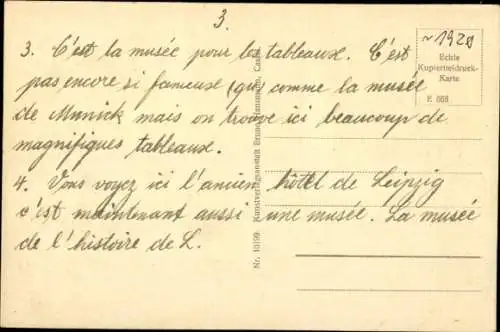 3.
~1920
Echte
Kupfertiefdruck-
Karte
E 668
3. C'est la musée pour les tableaux. C'est
pas encore si fameuse (qu) comme la musée
de Munick mais on trouve ici beaucoup de
magnifiques tableaux.
4. Vous voyez ici l'ancien hôtel de Leipzig
c'est maintenant aussi une musée. La musée
de l'histoire de L.
Nr. 10199 Kunstverlagsanstalt Bruno Hansmann, Cassel